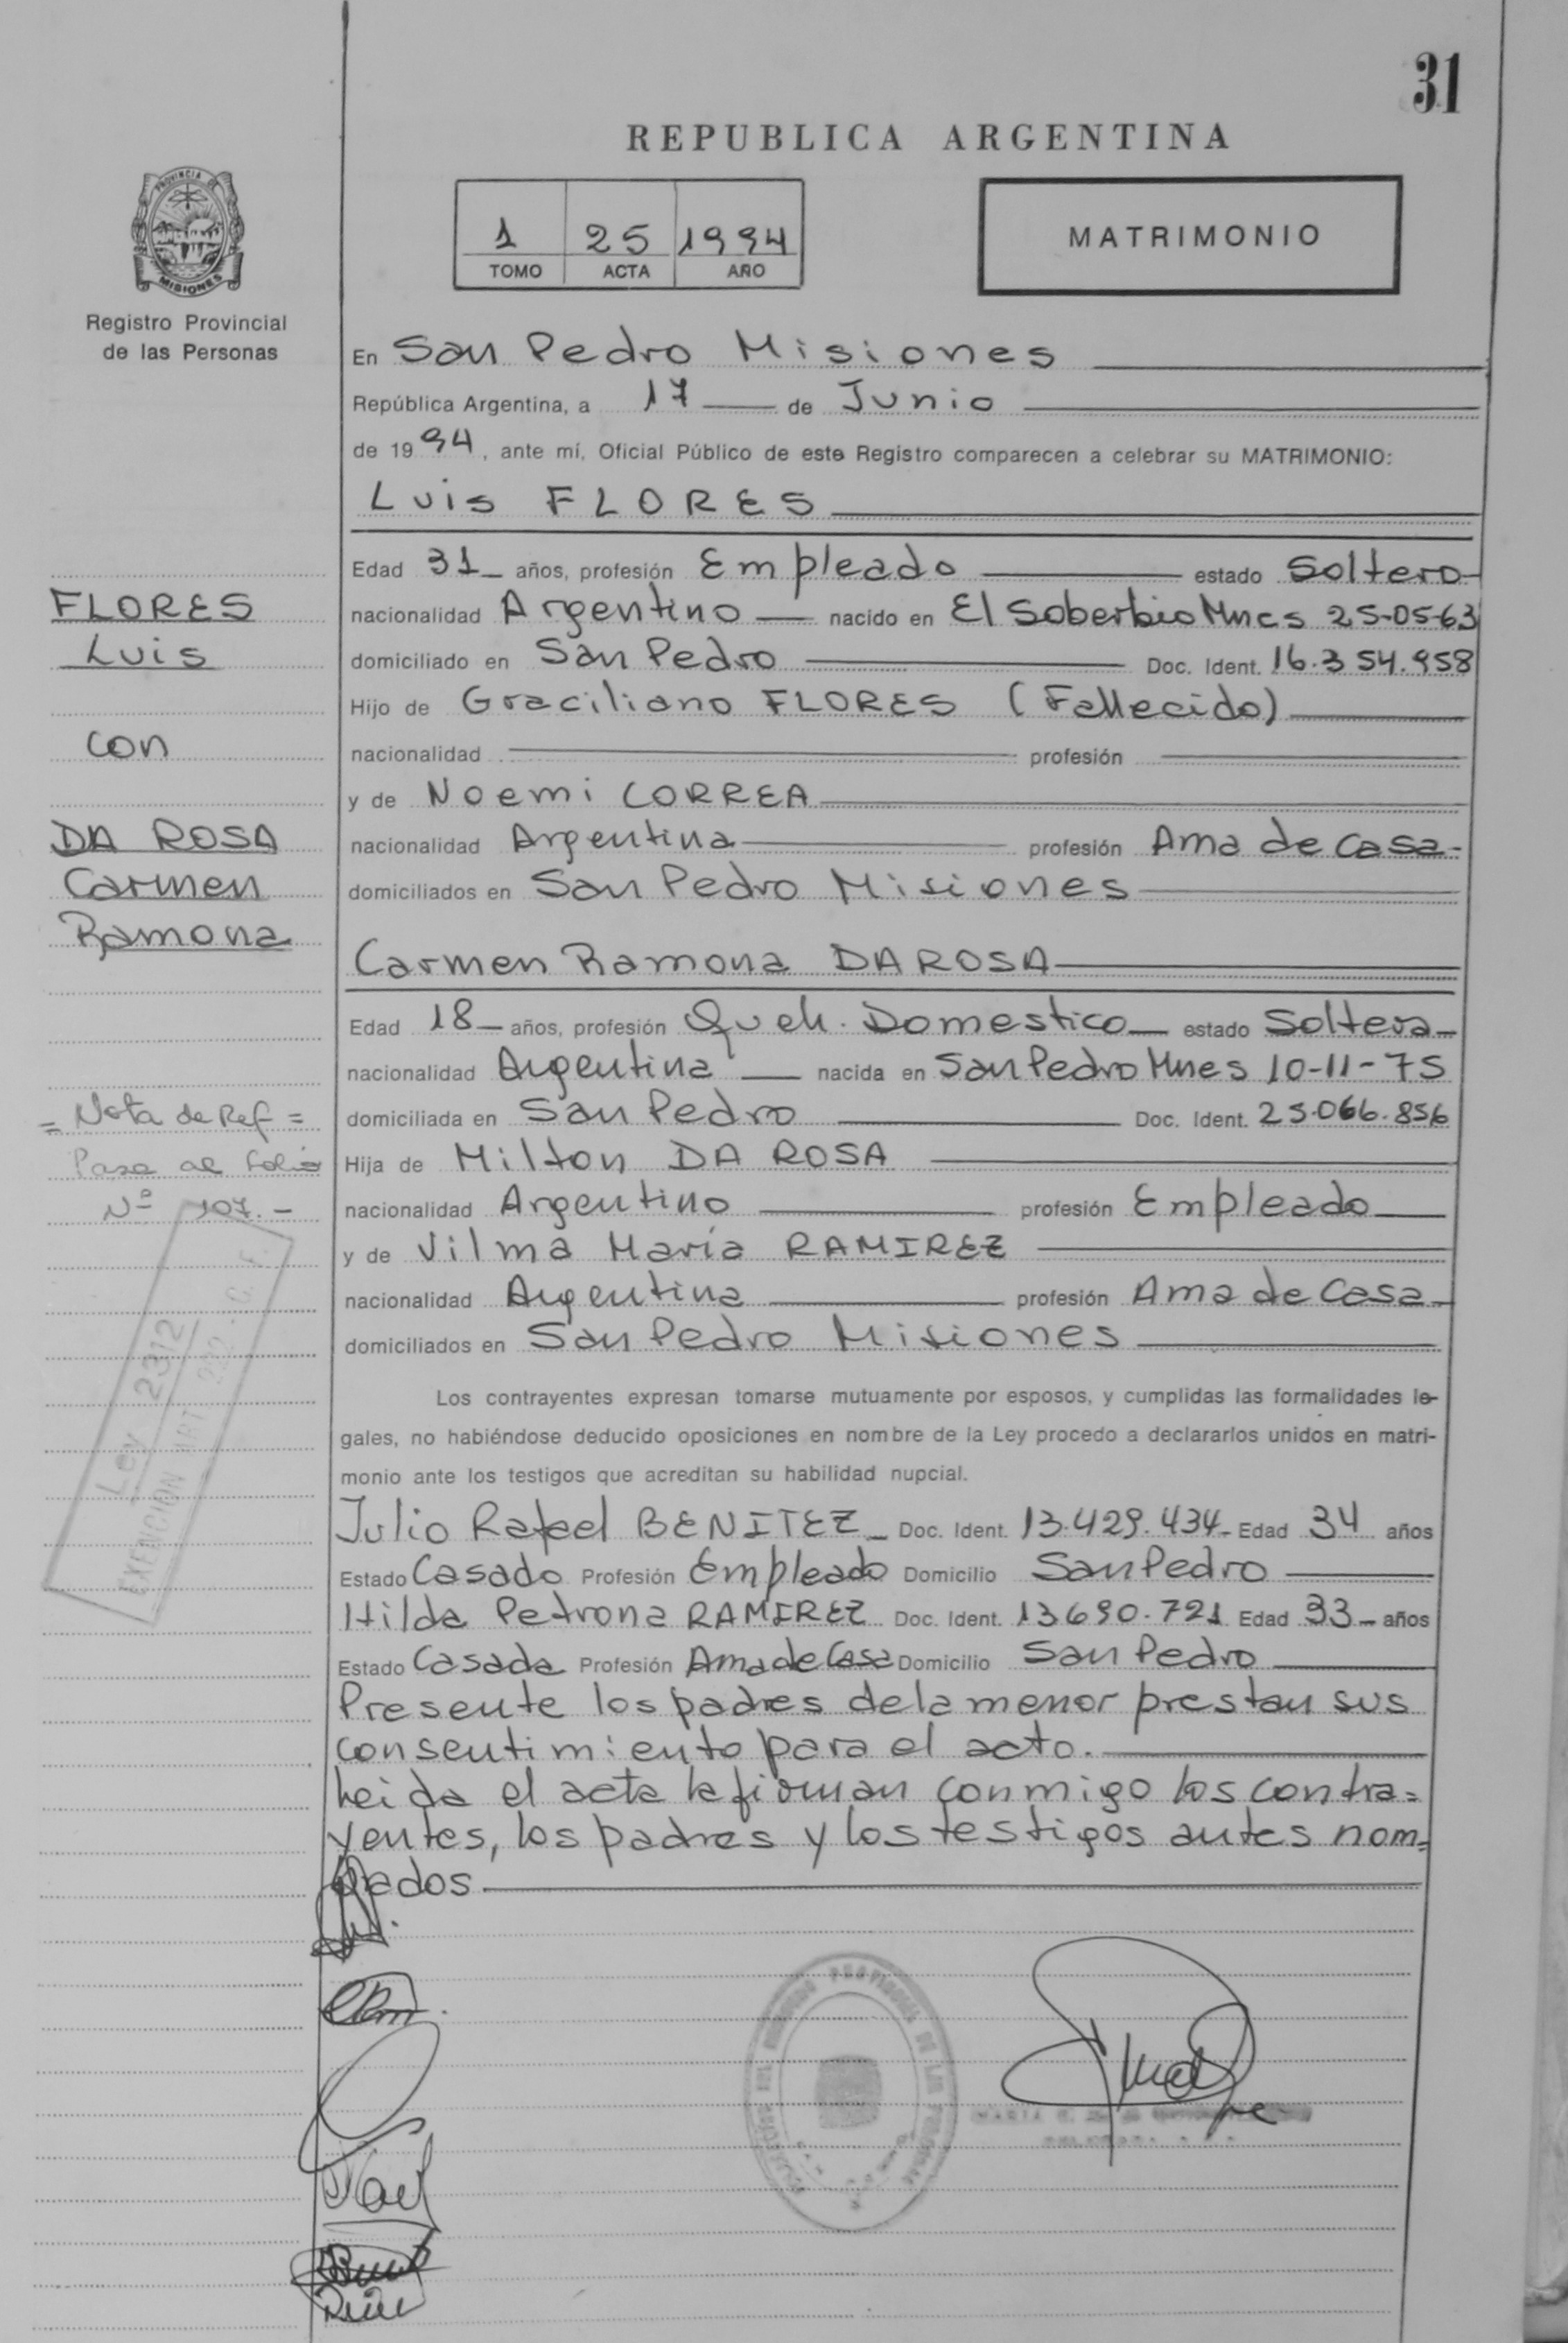 31
REPUBLICA ARGENTINA
PROVINCIA DE
MISIONES
Registro Provincial
de las Personas
1 25 1994
TOMO ACTA AÑO
MATRIMONIO
En San Pedro Misiones
República Argentina, a 17 de Junio
de 1994, ante mí, Oficial Público de este Registro comparecen a celebrar su MATRIMONIO:
Luis FLORES
Edad 31 años, profesión Empleado estado Soltero
nacionalidad Argentino nacido en El Soberbio Mnes 25-05-63
domiciliado en San Pedro Doc. Ident. 16.354.958
Hijo de Graciliano FLORES (Fallecido)
nacionalidad profesión
y de Noemi CORREA
nacionalidad Argentina profesión Ama de Casa
domiciliados en San Pedro Misiones
Carmen Ramona DA ROSA
Edad 18 años, profesión Queh. Domestico estado Soltera
nacionalidad Argentina nacida en San Pedro Mnes 10-11-75
domiciliada en San Pedro Doc. Ident. 25.066.856
Hija de Milton DA ROSA
nacionalidad Argentino profesión Empleado
y de Vilma María RAMIREZ
nacionalidad Argentina profesión Ama de Casa
domiciliados en San Pedro Misiones
Los contrayentes expresan tomarse mutuamente por esposos, y cumplidas las formalidades le-
gales, no habiéndose deducido oposiciones en nombre de la Ley procedo a declararlos unidos en matri-
monio ante los testigos que acreditan su habilidad nupcial.
Julio Rafael BENITEZ Doc. Ident. 13.429.434 Edad 34 años
Estado Casado Profesión Empleado Domicilio San Pedro
Hilda Petrona RAMIREZ Doc. Ident. 13690.721 Edad 33 años
Estado Casada Profesión Ama de Casa Domicilio San Pedro
Presente los padres de la menor prestan sus
consentimiento para el acto.
Leida el acta la firman conmigo los contra=
yentes, los padres y los testigos antes nom=
brados
FLORES
Luis
con
DA ROSA
Carmen
Ramona
= Nota de Ref =
Pasa al folio
Nº 107.-
Ley 2312
EXENCION ART